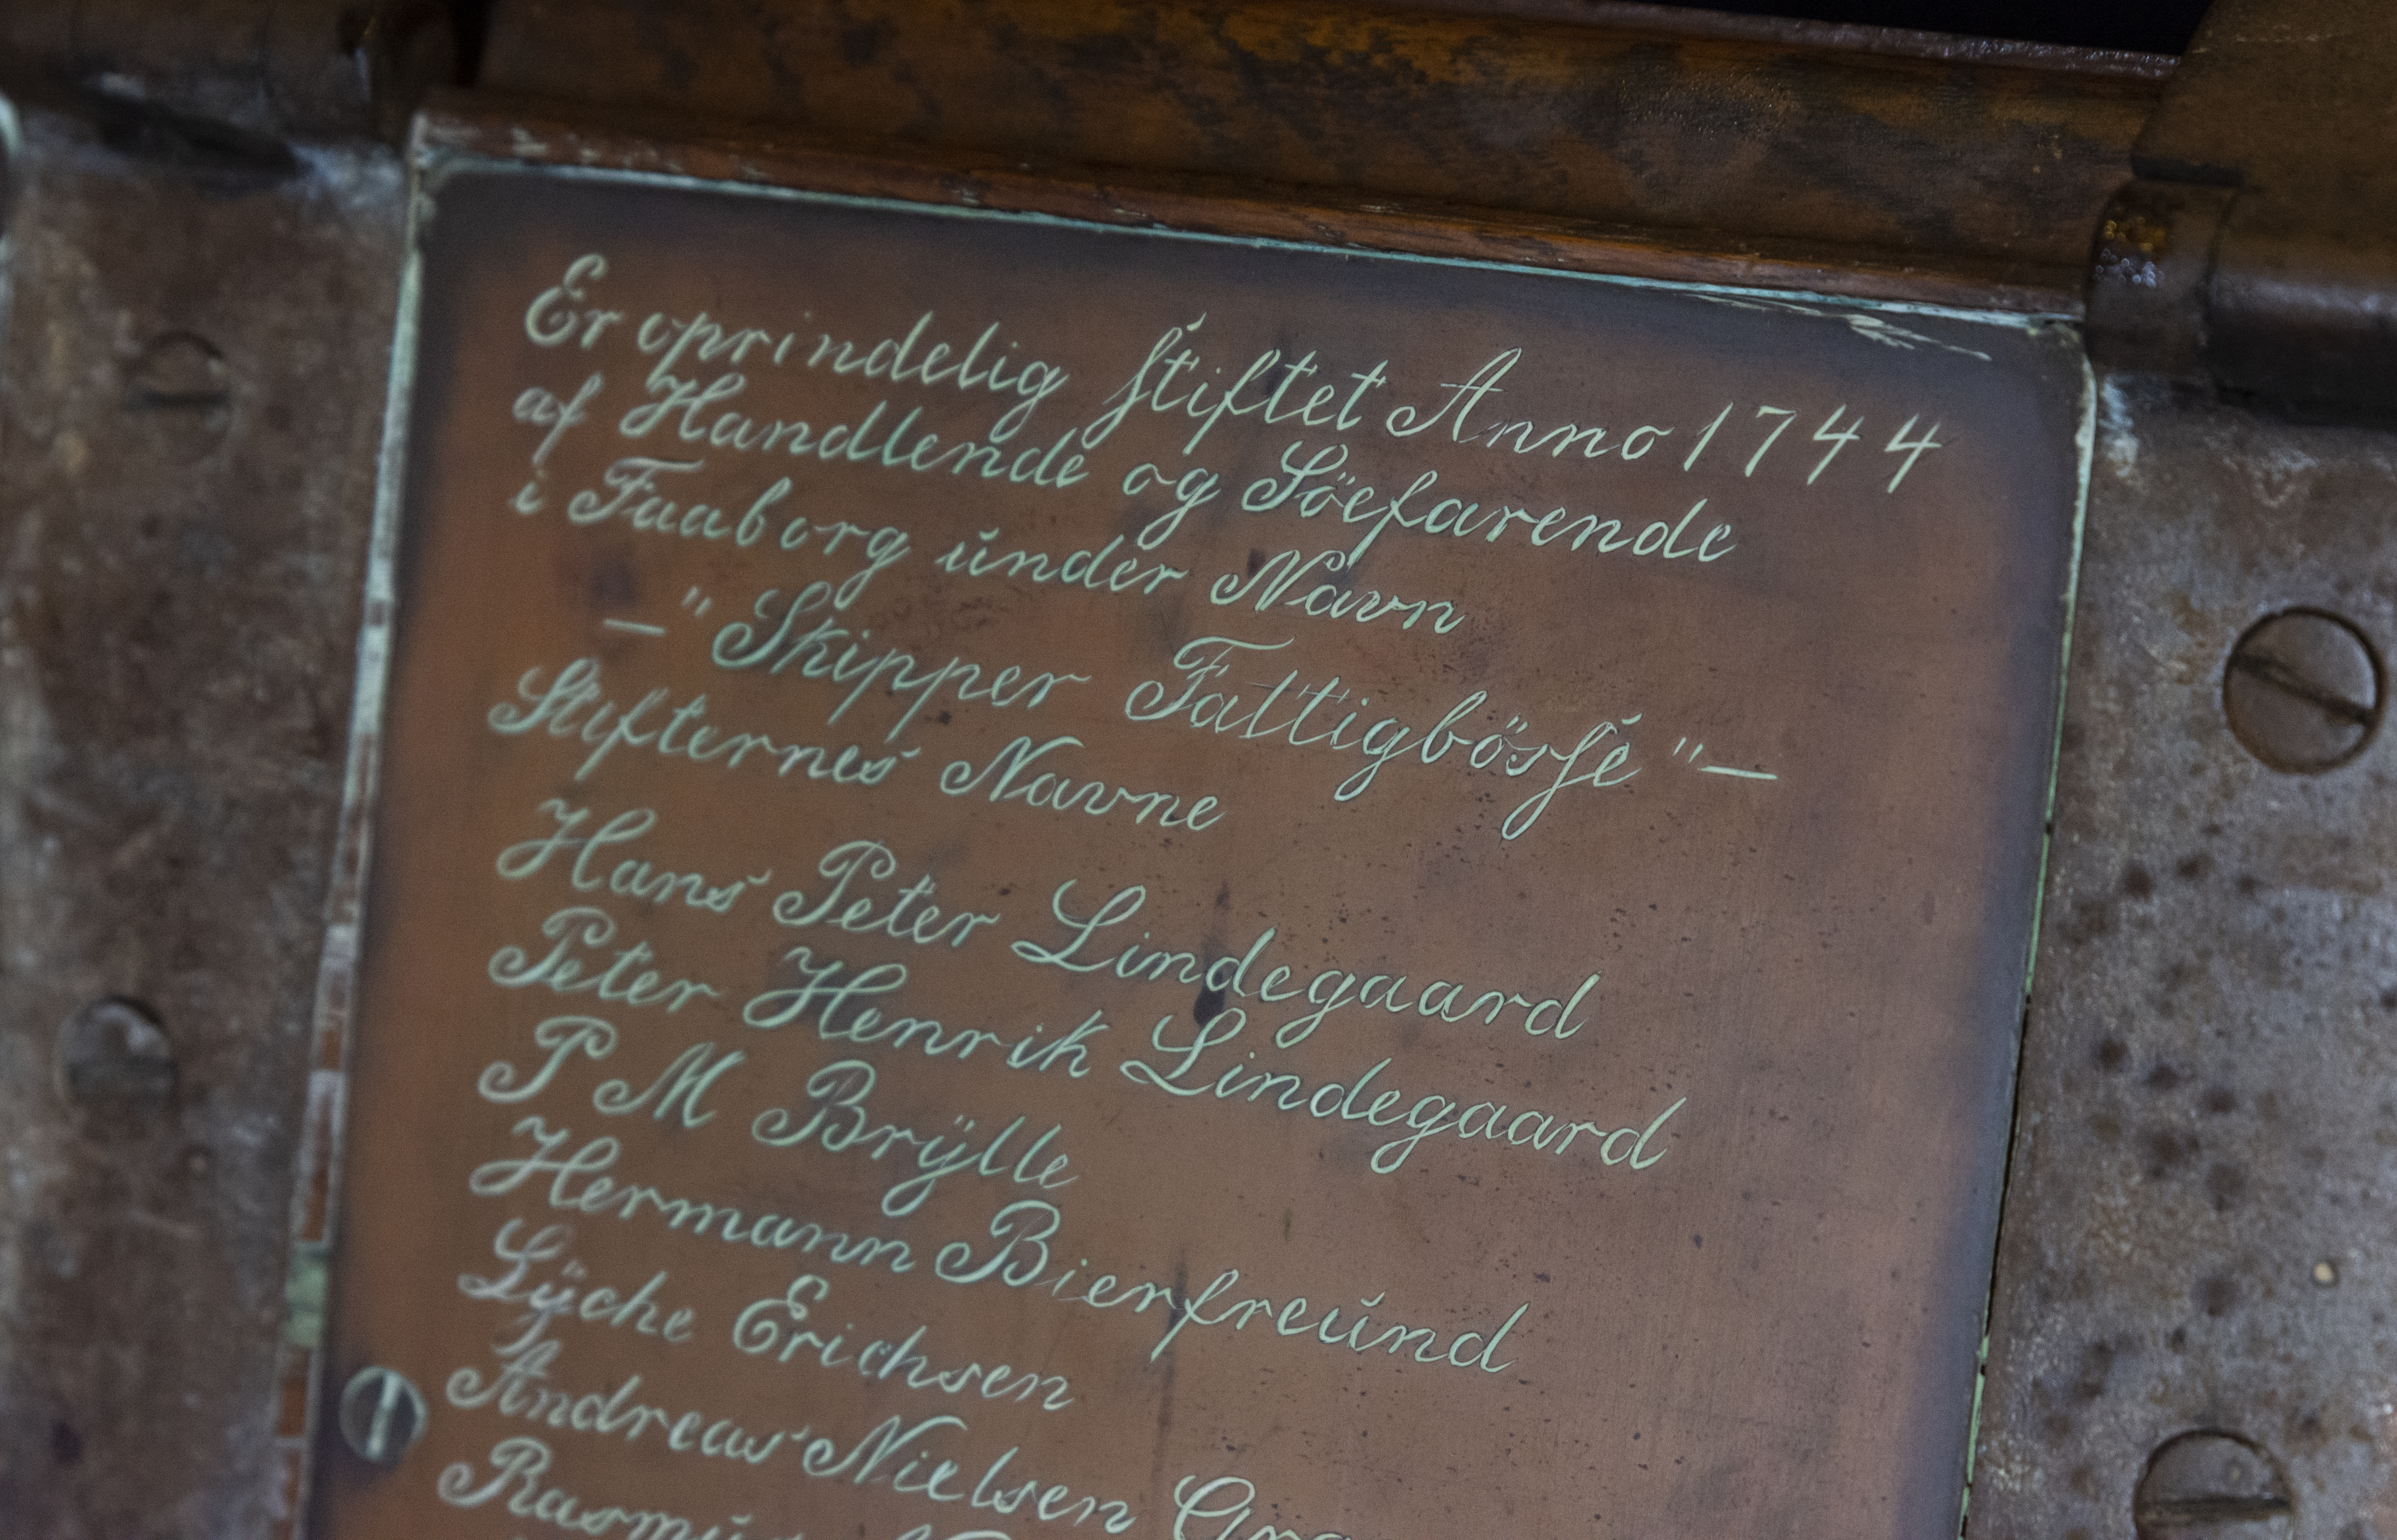 Er oprindelig stiftet Anno 1744
af Handlende og Söefarende
i Faaborg under Navn
—"Skipper Fattigbösse"—
Stifternes Navne
Hans Peter Lindegaard
Peter Henrik Lindegaard
P M Brÿlle
Hermann Bierfreund
Lÿche Erichsen
Andreas Nielsen
Rasmus